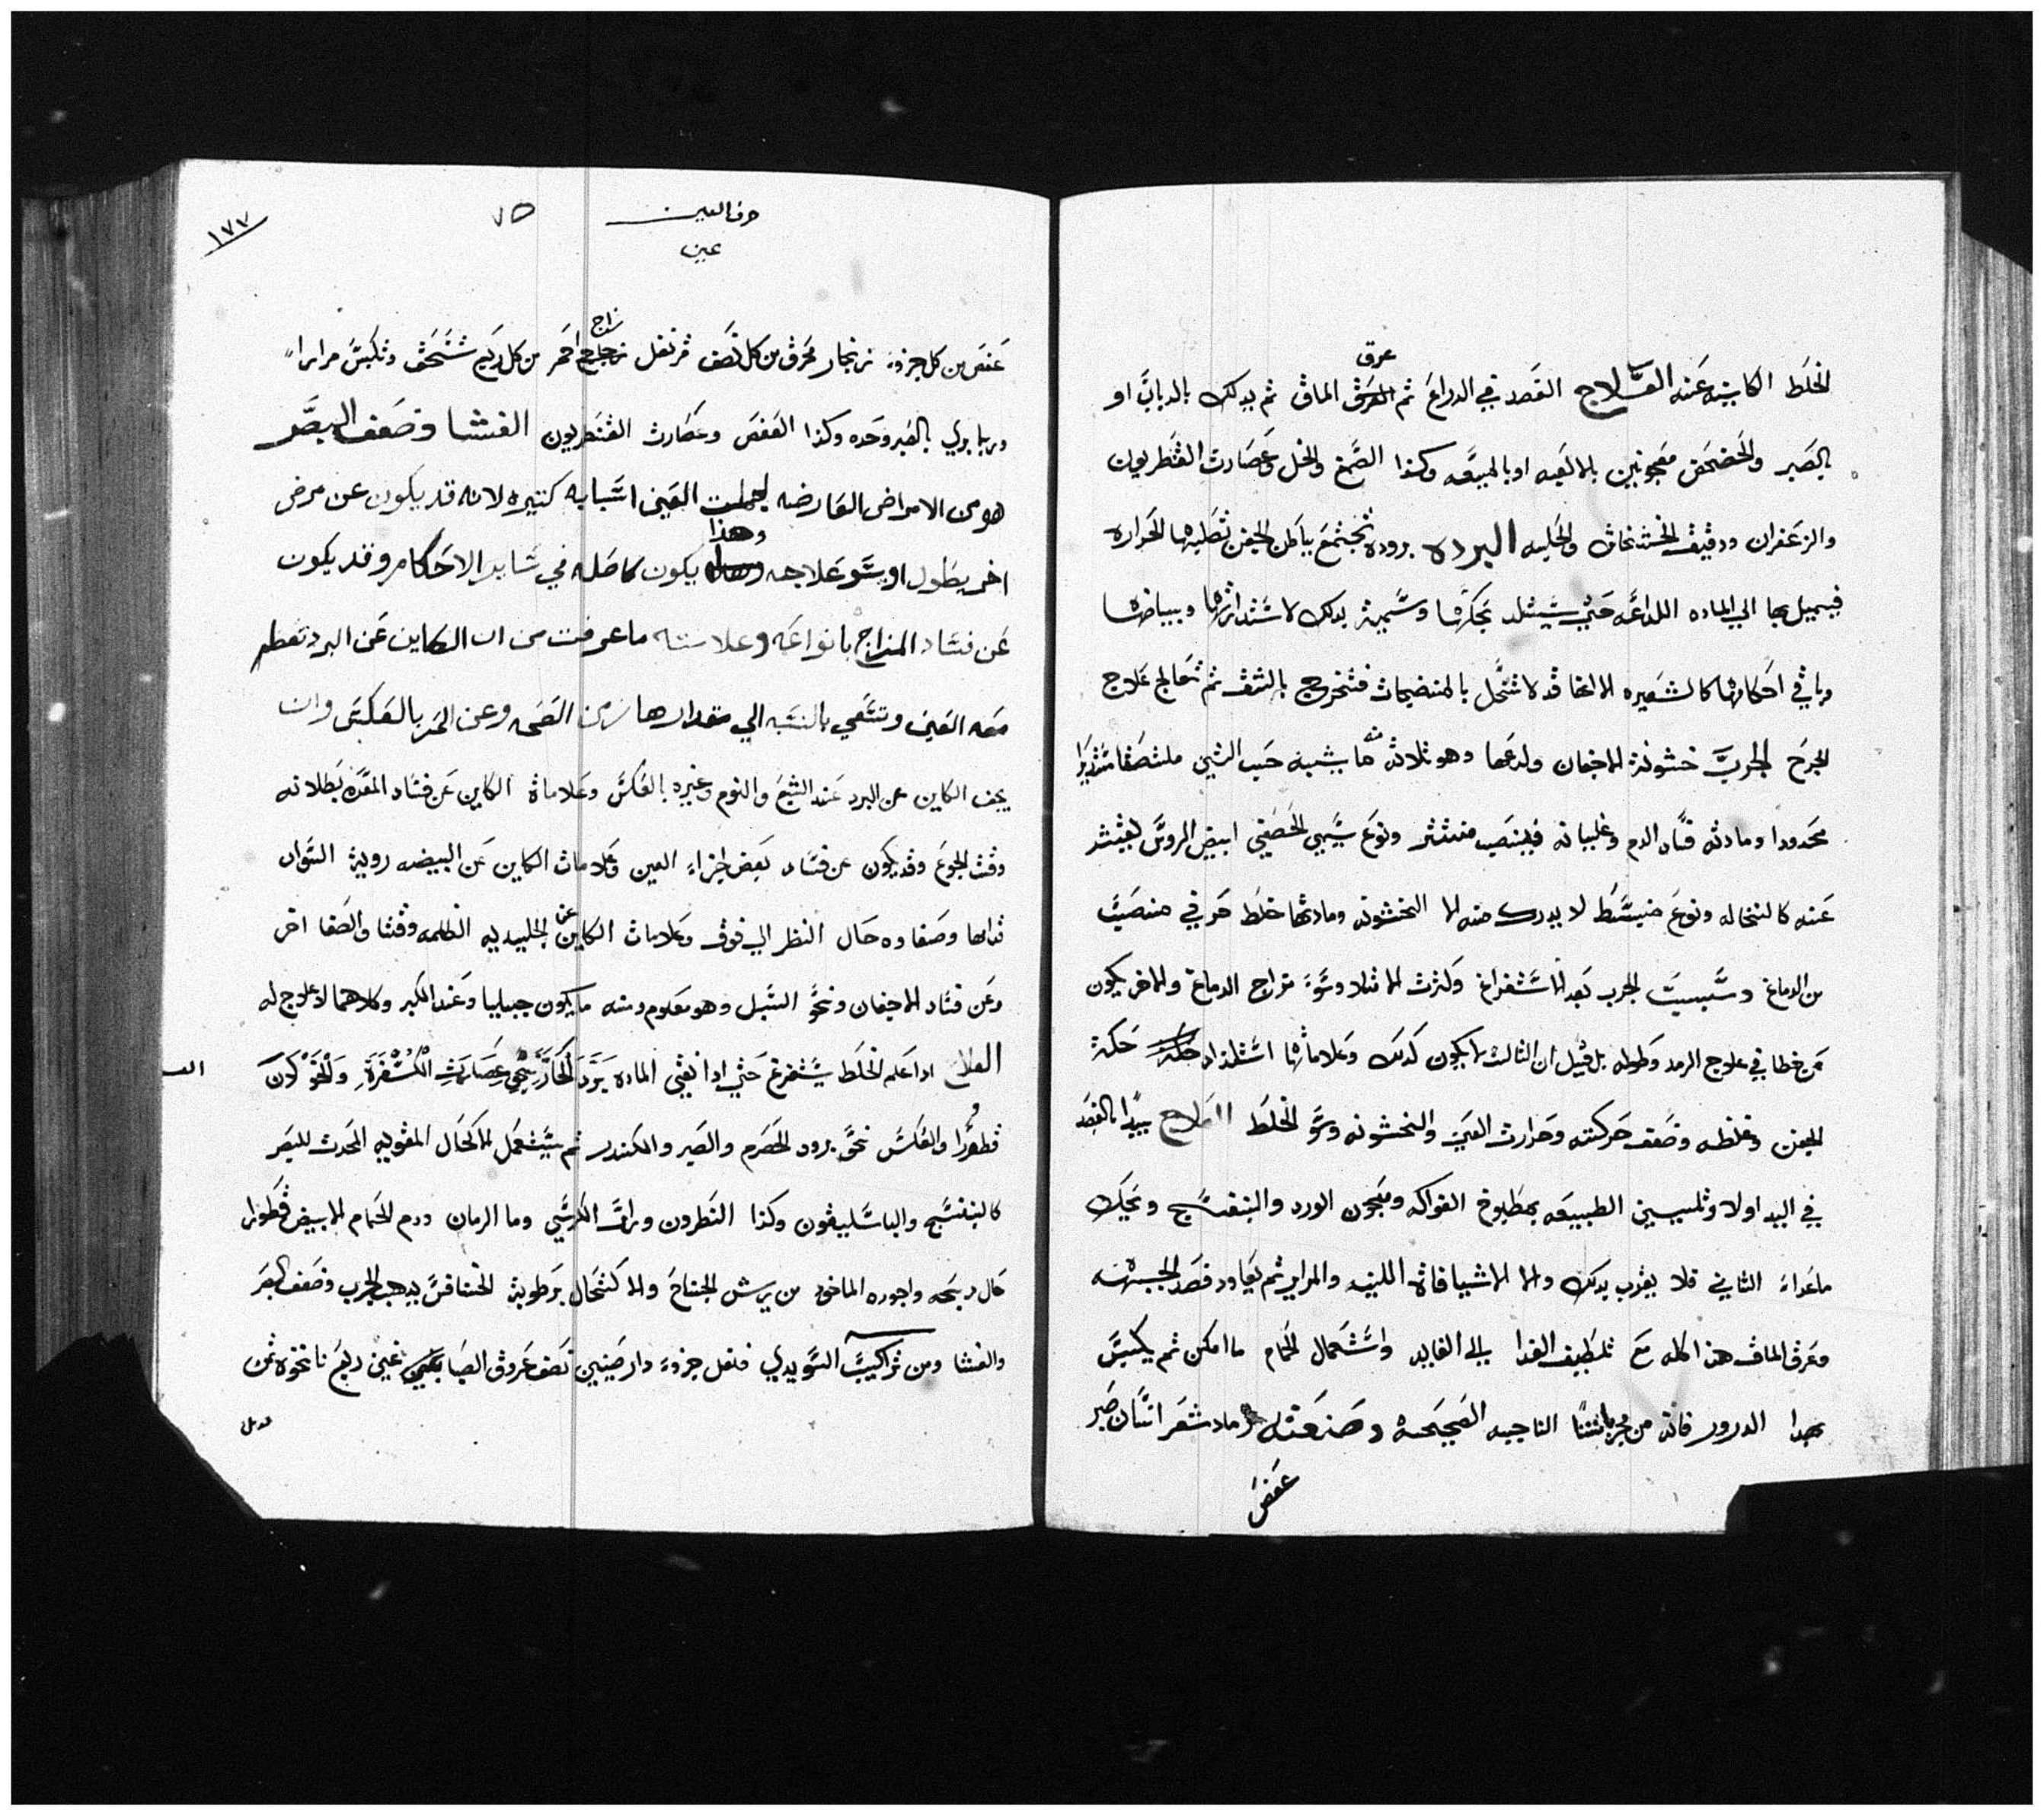 عرق
الخلط الكاينه عنه العلاج الفصد في الدراع ثم العرق الماق ثم يدلك بالدباب او
بالصبر والخضخض معجونين بالالعبه او بالميعه وكدا الصمغ والخل وعصارت القنطريون
والزعفران ودقيق الخشخاش والحلبه البرده بروده تجتمع بباطن الجفن تصلبها الحراره
فيميل بها الي الماده اللداعه حتي يستلد بحكتها وسميت بدلك لاستدارتها وبياضها
وباقي احكامها كالشعيره الا انها قد لا تنحل بالمنضجات فتخرج بالشق ثم تعالج علاج
الجرح الجرب خشونة الاجفان ولدعها وهو ثلاثه ما يشبه حب التين ملتصقا مستديرا
محدودا ومادته فساد الدم وغليانه فينصب منتثر ونوع يسمي الحصفي ابيض الروس ينتثر
عنه كالنخاله ونوع منبسط لا يدرك منه الا الخشونه ومادتها خلط حريف منصب
من الدماغ وسبب الجرب بعد الاستفراغ وكثرت الامتلا وسوء مزاج الدماغ والاخر يكون
عن خطا في علاج الرمد وطوله بل قيل ان الثالث لا يكون كدلك وعلاماتها استلداد حكة
الجفن وغلظه وضعف حركته وحرارت العين والخشونه وسو الخلط العلاج يبدا بالفصد
في اليد اولا وتلين الطبيعه بمطبوخ الفواكه ومعجون الورد والبنفسج ويحك
ماعداء الثاني فلا يقرب بدلك والا الاشيافاة اللينه والمراير ثم يعاود فصد الجبهه
وعرق الماق هدا كله مع تلطيف الغدا الي الغايه واستعمال الحمام ما امكن ثم يكبس
بهدا الدرور فانه من مجرباتنا الناجبه الصحيحه وصنعته رماد شعر انسان صبر
عفص
حرف العين
عين
٧٥
١٧٧
زاج
عفص من كل جزوء زنجار محرق من كل نصف قرنفل احمر من كل ربع تسحق وتكبس مرارا
وربما بري بالصبر وحده وكدا العفص وعصارت القنطريون الغشا وضعف البصر
هو من الامراض العارضه لجملت العين اسبابه كتيره لانه قد يكون عن مرض
وهدا
اخر يطول او بسو علاجه يكون كاصله في ساير الاحكام وقد يكون
عن فساد المزاج بانواعه وعلامته ماعرفت من ان الكاين عن البرد تعظم
معه العين وتنتفي بالنسبه الي مقدارها زمن الصحه وعن الحر بالعكس وان
يخف الكاين عن البرد عند الشبع والنوم وغيره بالعكس وعلاماة الكاين عن فساد المعده بطلانه
وقت الجوع وقد يكون عن فساد بعض اجزاء العين وعلامات الكاين عن البيضه روية السواد
قدامها وصفاوه حال النظر الي فوق وعلامات الكاين عن الجليديه الظلمه وقتا والصفا اخر
وعن فساد الاجفان ونحو السبل وهو معلوم ومنه ما يكون جبليا وعند الكبر وكلاهما لا علاج له
العلاج ادا علم الخلط يستفرغ حتي ادا نقي الماده برد الحار بنحي عصارت الكسفرة ولنحو كان
قطورا والعكس نحو برود الحصرم والصبر والكندر ثم يستعمل الاكحال المقويه المحدت للبصر
كالبنفسج والباسليقون وكدا النطرون ومراق الكرسي وما الرمان ودم الحمام الابيض قطورا
حال دبحه واجوده الماخود من ريش الجناح والاكتحال برطوبة الخنافس يدهب الجرب وضعف البصر
والغشا ومن تراكيب السويدي فلفل جزوء دار صيني نصف عروق الصباغين ربع نانخوه ثمن